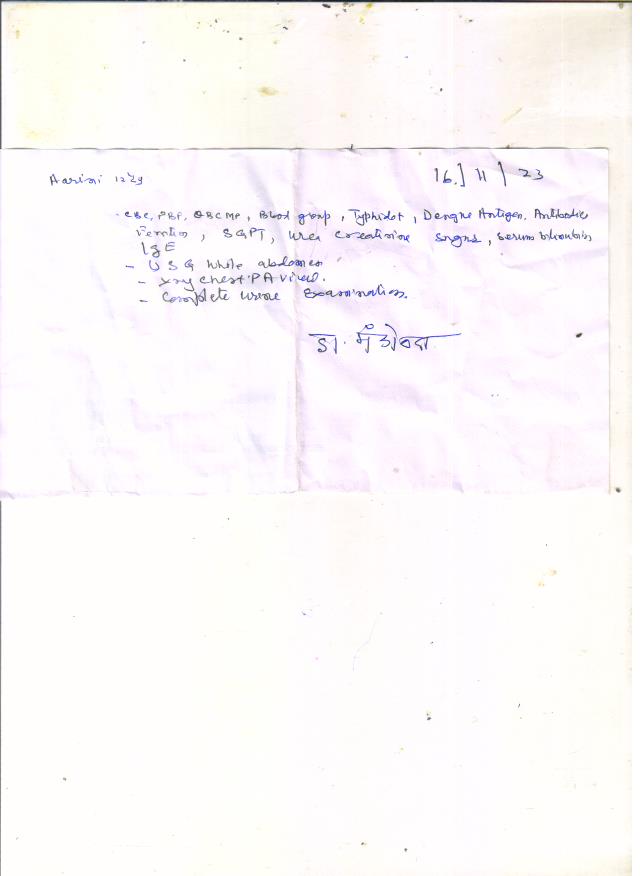 Aarini 12 2y
16.11/23
- CBC, PBF, QBC MP, Blood group, Typhidot, Dengue Antigen. Antibodies
SGPT, Urea Creatinine Serum bilirubin,
IgE
- USG While abdomen
- xry chest PA view.
- Complete urine Examination.
डा.